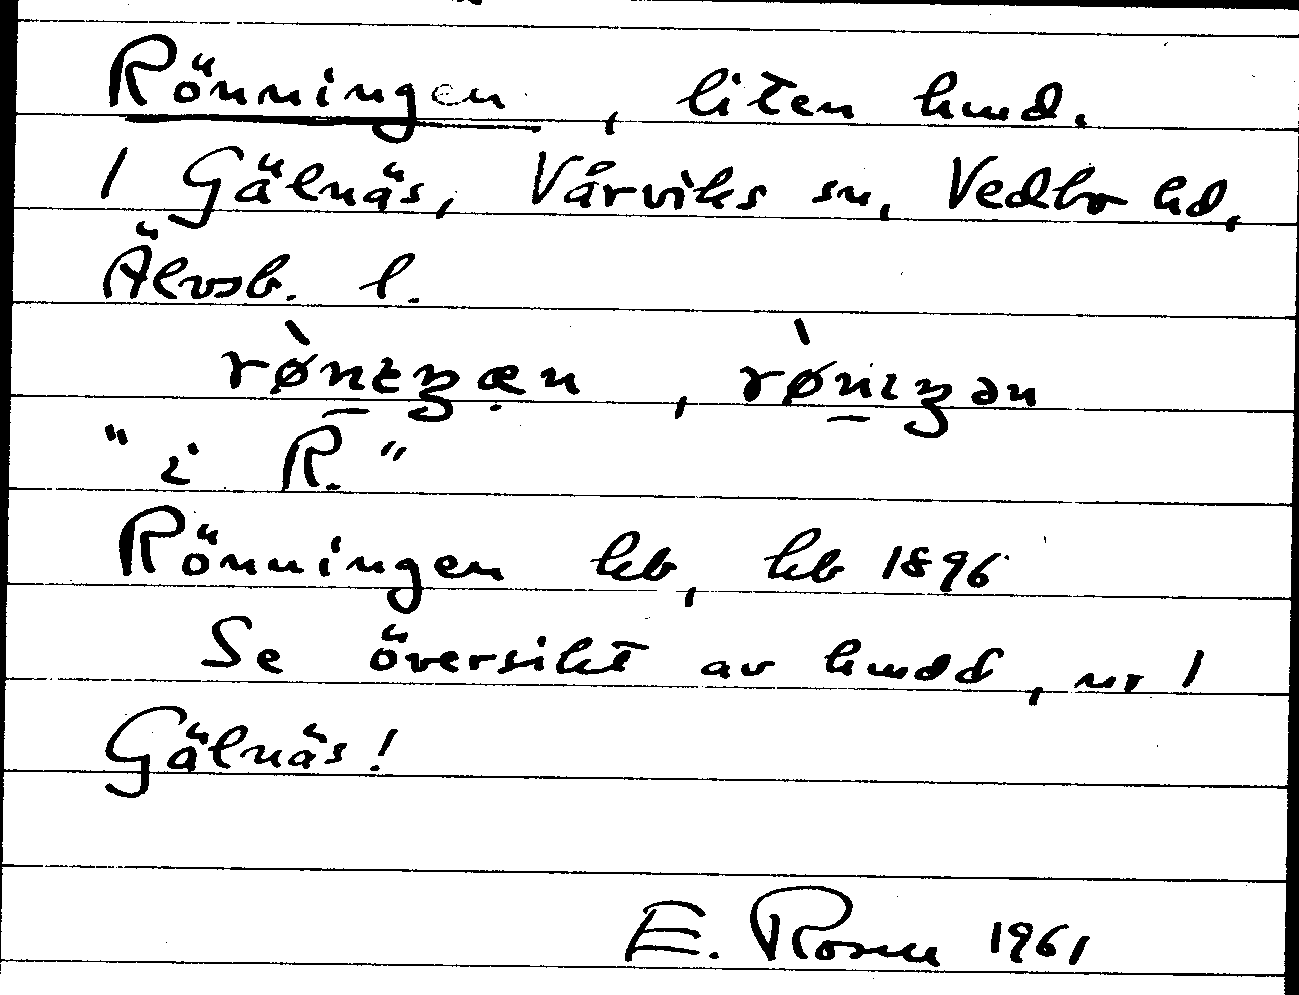 Rönningen, liten hmd.
1 Gälnäs, Vårviks sn, Vedbo hd,
Älvsb. l.
"i R."
Rönningen kb, kb 1896
Se översikt av hmdd, nr 1
Gälnäs!
E. Rosen 1961